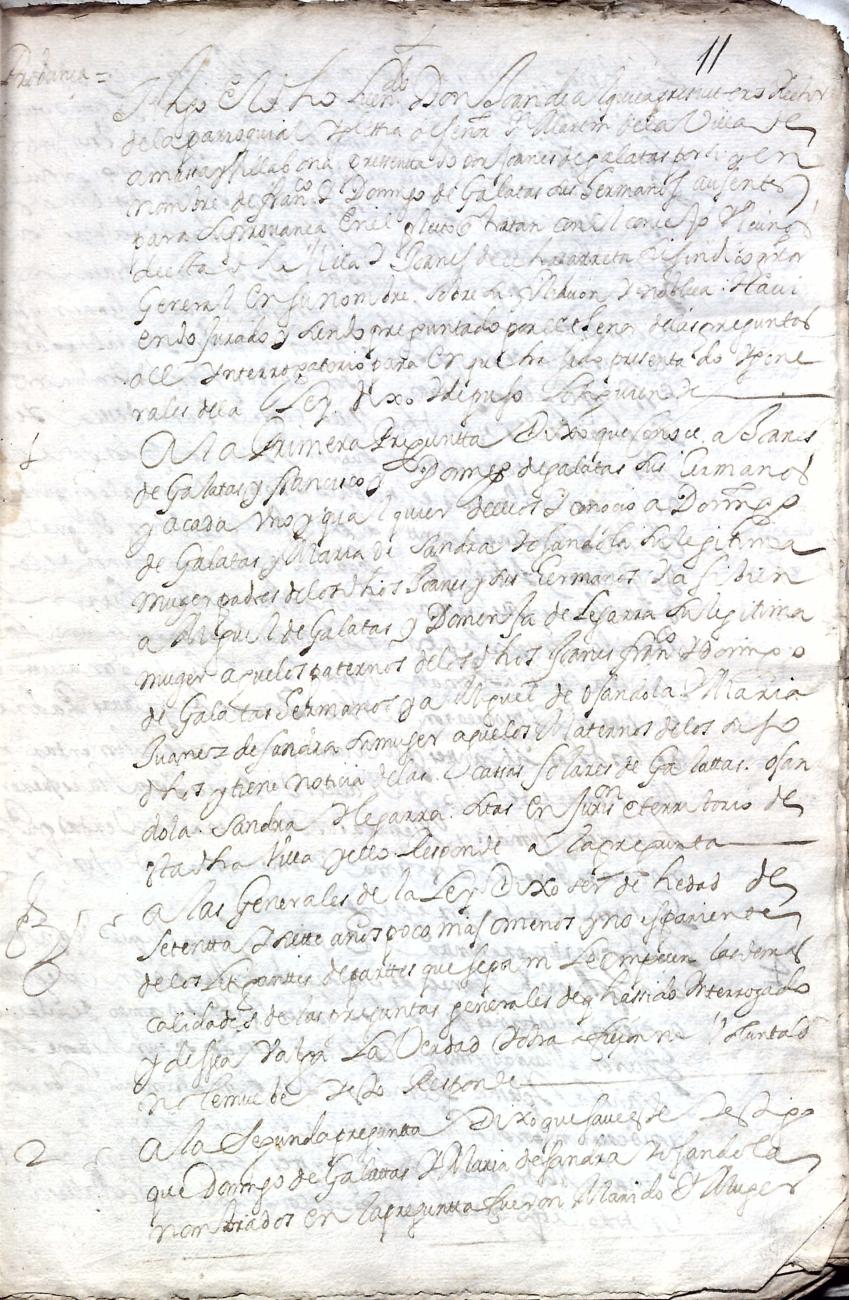 11
Probança =
Tt̃go El dho Licendo Don Joan de a presvitero Rector
de la parroquial yglesia de señor S. Martin de la Villa de
amasa y Villabona presentado por Joanes de galatas por si y en
nombre de Franco y Domingo de Galatas sus hermanos ausentes
para su provanca En el pleito q tratan con el concejo y vecinos
de esta dha Villa y Joanes de echazarreta sindico prior
General En su nombre sobre la y nobleza: Havi
endo Jurado y siendo preguntado por el thenor de las preguntas
del ynterrogatorio para En que ha sido presentado y gene
rales de la Ley dixo y depuso lo siguiente
1 A la Primera Pregunta Dixo que conoce a Joanes
de Galatas y francisco y Domingo de galatas sus hermanos
y a cada Uno y qualquier dellos y conocio a Domingo
de Galatas y Maria de Sandra osandola su legitima
muger padres de los dhos Joanes y sus hermanos y assi bien
a Miguel de Galatas y Domenja de Legarra su legitima
muger aguelos paternos de los dhos Joanes franco y domingo
de Galatas hermanos y a Miguel de osandola y Maria
Juanez de sandra su muger aguelos Maternos de los
dhos y tiene noticia de las cassas solares de Galattas. osan
dola. Sandra y legarra. sitas en Jurisn e territorio de
esta dha Villa y esto Responde a la pregunta
a las Generales de la Ley Dixo ser de hedad de
setentta y siette años poco mas o menos y no es pariente
de los Litigantes de partes que sepa ni Le empecen las demas
calidades de las preguntas generales de q ha ssido ynterrogado
y dessea Valga La Verdad
no y esto Responde
2 A la Segunda pregunta Dixo que save este Testigo
que Domingo de Galattas y Maria de sandra osandola
nombrados en la pregunta fueron Marido y Muger